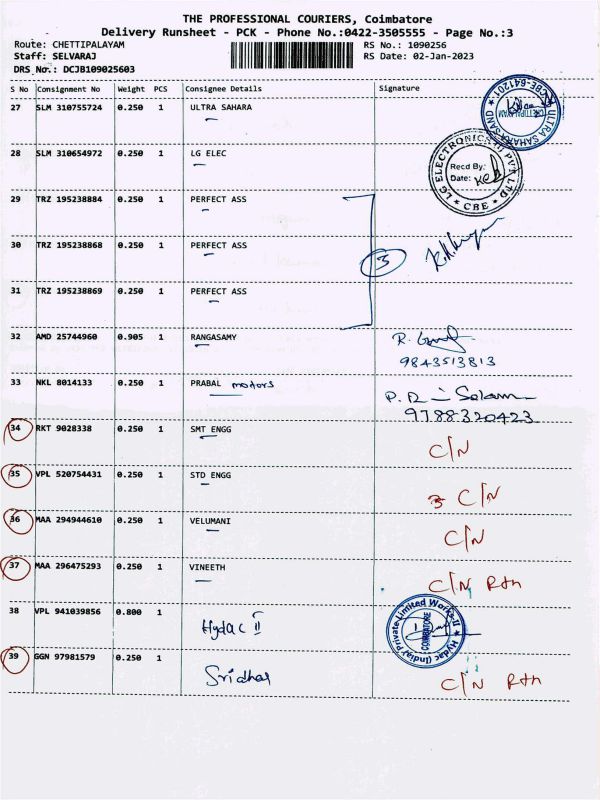 THE PROFESSIONAL COURIERS, Coimbatore
Delivery Runsheet - PCK - Phone No.:0422-3505555 - Page No.:3
Route: CHETTIPALAYAM RS No.: 1090256
Staff: SELVARAJ RS Date: 02-Jan-2023
DRS No.: DCJB109025603
S No Consignment No Weight PCS Consignee Details Signature
27 SLM 310755724 0.250 1 ULTRA SAHARA
CHETTIPALAYAM
28 SLM 310654972 0.250 1 LG ELEC
LG ELECTRONICS (I) PVT LTD
Recd By:
Date:
★ CBE ★
29 TRZ 195238884 0.250 1 PERFECT ASS
30 TRZ 195238868 0.250 1 PERFECT ASS 3
31 TRZ 195238869 0.250 1 PERFECT ASS
32 AMD 25744960 0.905 1 RANGASAMY
9843513813
33 NKL 8014133 0.250 1 PRABAL motors
9788320423
34 RKT 9028338 0.250 1 SMT ENGG C/N
35 VPL 520754431 0.250 1 STD ENGG C/N
36 MAA 294944610 0.250 1 VELUMANI C/N
37 MAA 296475293 0.250 1 VINEETH C/N Rtn
38 VPL 941039856 0.800 1 Hydac II
Hydac (India) Private Limited Works-II ★
COIMBATORE
39 GGN 97981579 0.250 1 Sridhar C/N Rtn